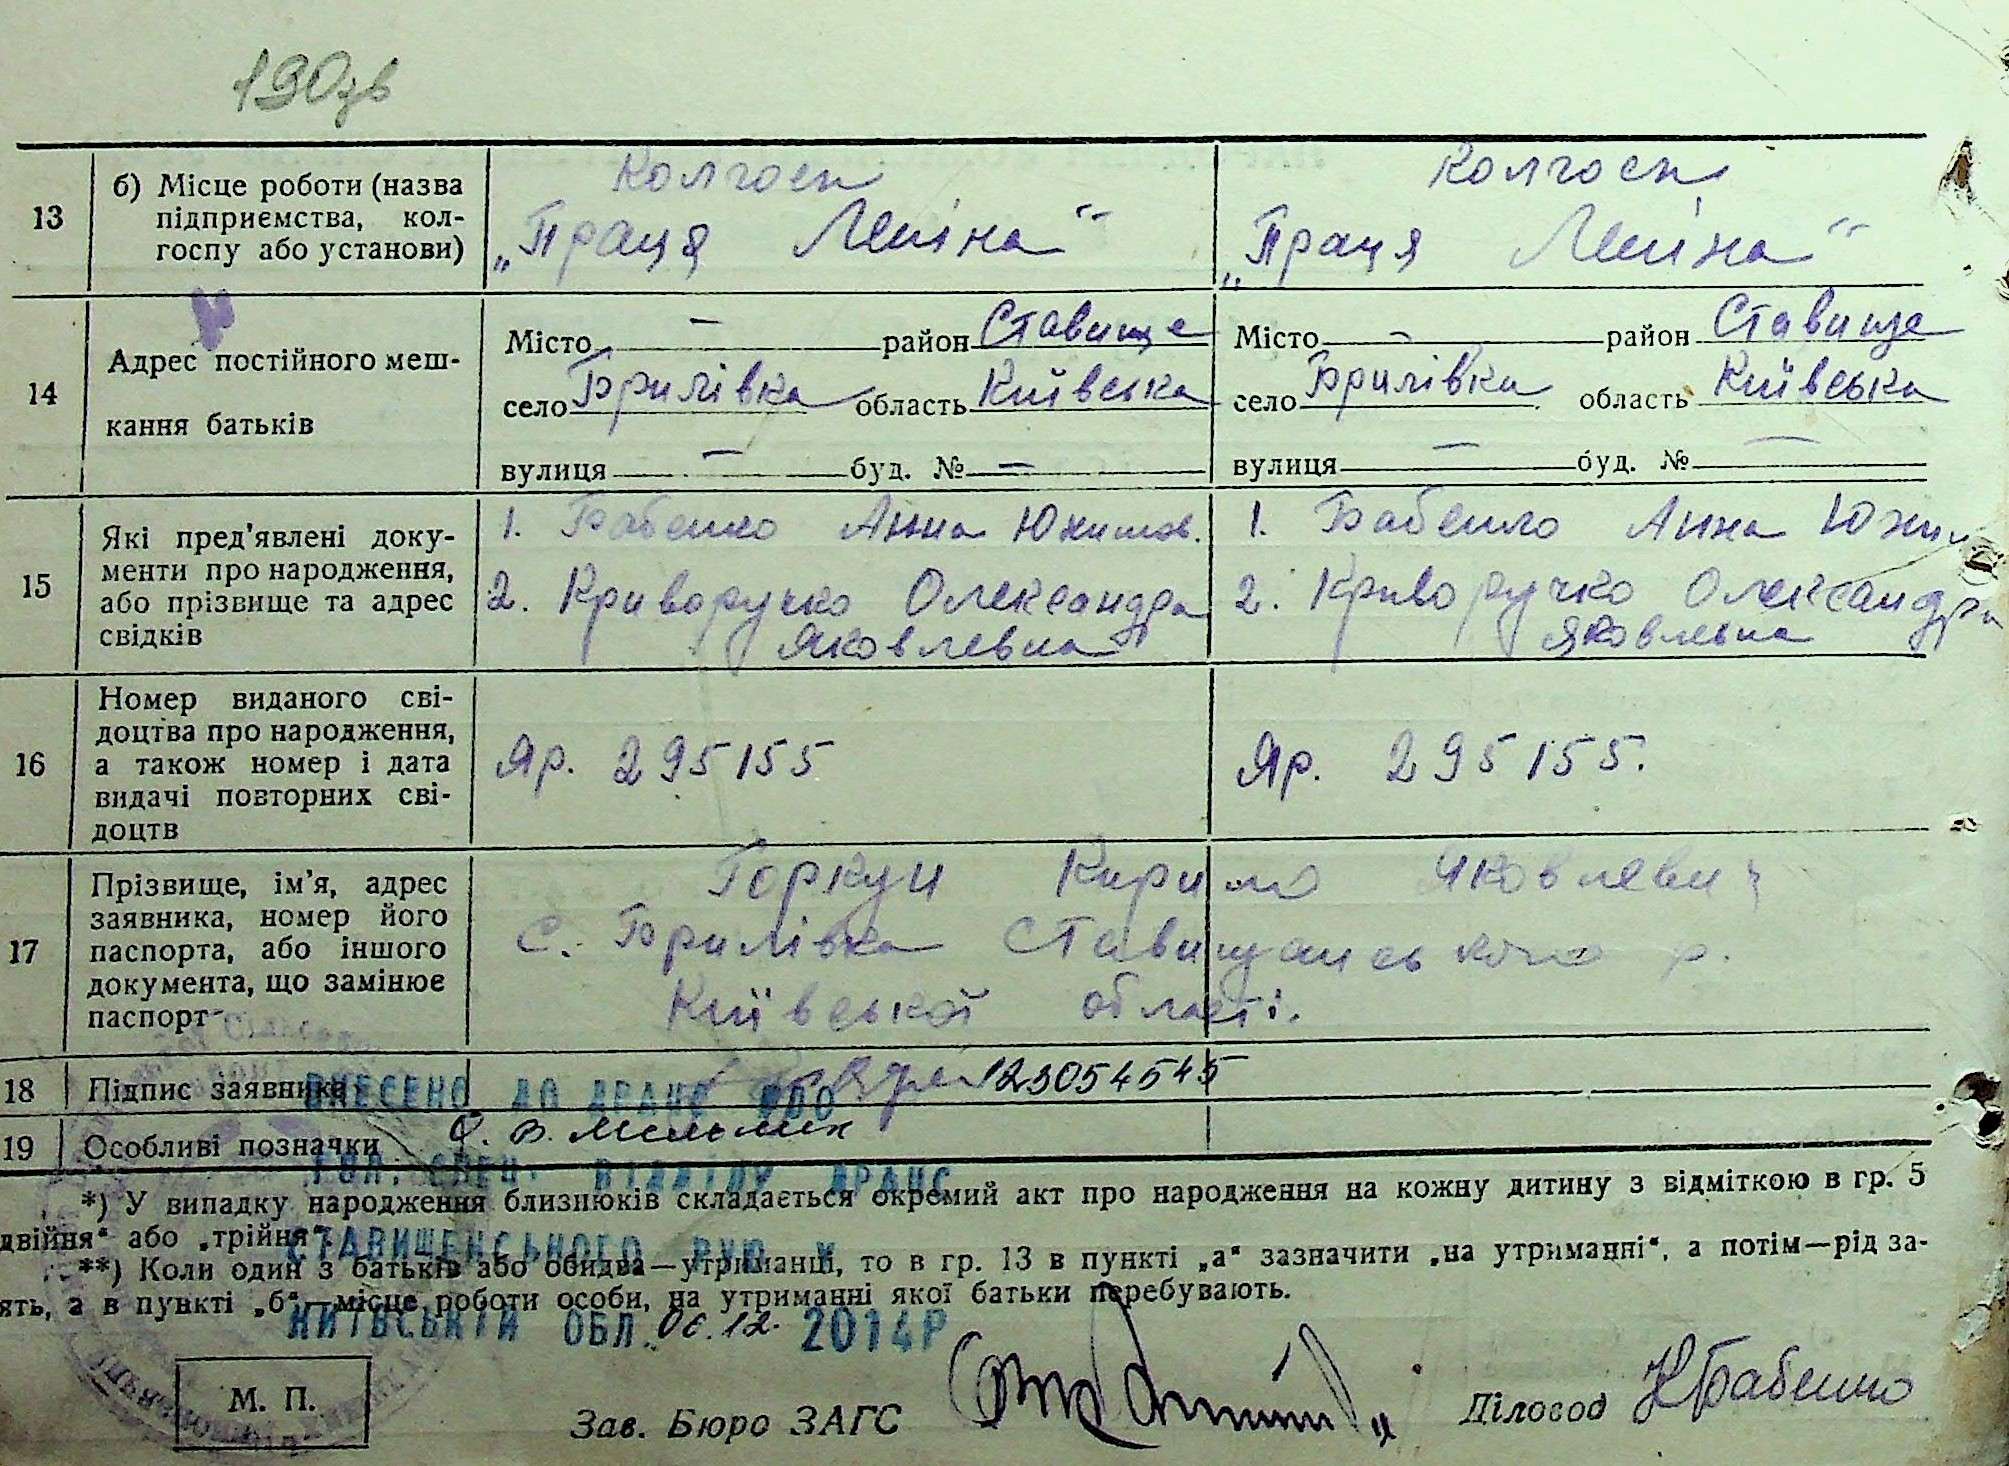 190зв
13
б) Місце роботи (назва
підприємства, кол-
госпу або установи)
Колгосп
„Праця Леніна“
Колгосп
„Праця Леніна“
14
Адрес постійного меш-
кання батьків
Місто — район Ставище
село Брилівка область Київська
вулиця — буд. № —
Місто — район Ставище
село Брилівка область Київська
вулиця — буд. № —
15
Які пред'явлені доку-
менти про народження,
або прізвище та адрес
свідків
1. Бабенко Анна Юхимов.
2. Криворучко Олександра
Яковлевна
1. Бабенко Анна Юхим
2. Криворучко Олександра
Яковлевна
16
Номер виданого сві-
доцтва про народження,
а також номер і дата
видачі повторних сві-
доцтв
Яр. 295155
Яр. 295155.
17
Прізвище, ім'я, адрес
заявника, номер його
паспорта, або іншого
документа, що замінює
паспорт
Горкун Кирило Яковлевич
с. Брилівка Ставищанського р.
Київської області.
18
Підпис заявника
123054545
ВНЕСЕНО ДО ДРАЦС
19
Особливі позначки
О. В. Мельник
ГОЛ. СПЕЦ. ВІДДІЛУ ДРАЦС
*) У випадку народження близнюків складається окремий акт про народження на кожну дитину з відміткою в гр. 5
двійня“ або „трійня“.
СТАВИЩЕНСЬКОГО РУЮ У
**) Коли один з батьків або обидва—утриманці, то в гр. 13 в пункті „а“ зазначити „на утриманні“, а потім—рід за-
ять, а в пункті „б“—місце роботи особи, на утриманні якої батьки перебувають.
КИЇВСЬКІЙ ОБЛ. 06.12. 2014Р
М. П.
Зав. Бюро ЗАГС
Діловод КБабенко